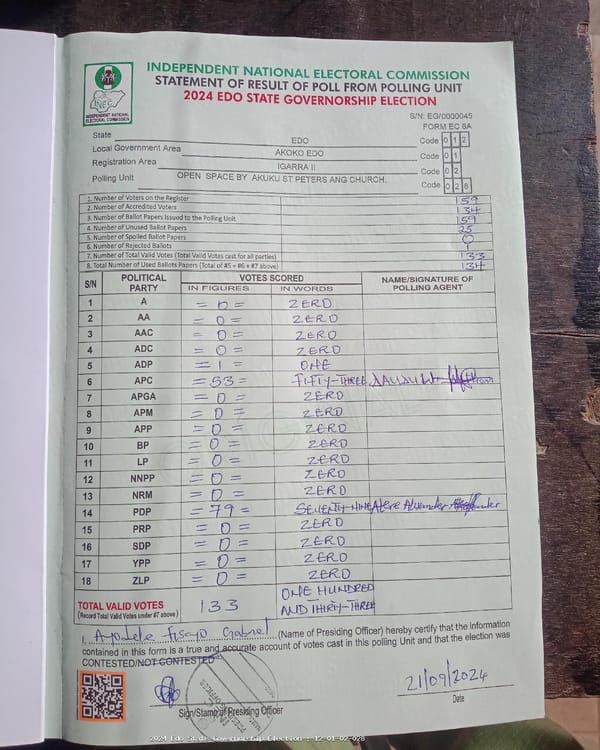 INDEPENDENT NATIONAL ELECTORAL COMMISSION
STATEMENT OF RESULT OF POLL FROM POLLING UNIT
2024 EDO STATE GOVERNORSHIP ELECTION
INEC
INDEPENDENT NATIONAL
ELECTORAL COMMISSION
S/N: EG/0000045
FORM EC 8A
State EDO Code 0 1 2
Local Government Area AKOKO EDO Code 0 1
Registration Area IGARRA II Code 0 2
Polling Unit OPEN SPACE BY AKUKU ST.PETERS ANG CHURCH. Code 0 2 8
1. Number of Voters on the Register 159
2. Number of Accredited Voters 134
3. Number of Ballot Papers Issued to the Polling Unit 159
4. Number of Unused Ballot Papers 25
5. Number of Spoiled Ballot Papers 0
6. Number of Rejected Ballots 1
7. Number of Total Valid Votes (Total Valid Votes cast for all parties) 133
8. Total Number of Used Ballots Papers (Total of #5 + #6 + #7 above) 134
S/N POLITICAL PARTY VOTES SCORED NAME/SIGNATURE OF POLLING AGENT
IN FIGURES IN WORDS
1 A = 0 = ZERO
2 AA = 0 = ZERO
3 AAC = 0 = ZERO
4 ADC = 0 = ZERO
5 ADP = 1 = ONE
6 APC = 53 = FIFTY-THREE
7 APGA = 0 = ZERO
8 APM = 0 = ZERO
9 APP = 0 = ZERO
10 BP = 0 = ZERO
11 LP = 0 = ZERO
12 NNPP = 0 = ZERO
13 NRM = 0 = ZERO
14 PDP = 79 = SEVENTY-NINE
15 PRP = 0 = ZERO
16 SDP = 0 = ZERO
17 YPP = 0 = ZERO
18 ZLP = 0 = ZERO
TOTAL VALID VOTES 133 ONE HUNDRED
(Record Total Valid Votes under #7 above) AND THIRTY-THREE
I, Ayodele Fisayo Gabriel (Name of Presiding Officer) hereby certify that the information
contained in this form is a true and accurate account of votes cast in this polling Unit and that the election was
CONTESTED/NOT CONTESTED
21/09/2024
Sign/Stamp of Presiding Officer Date
2024 Edo State Governorship Election : 12-01-02-028